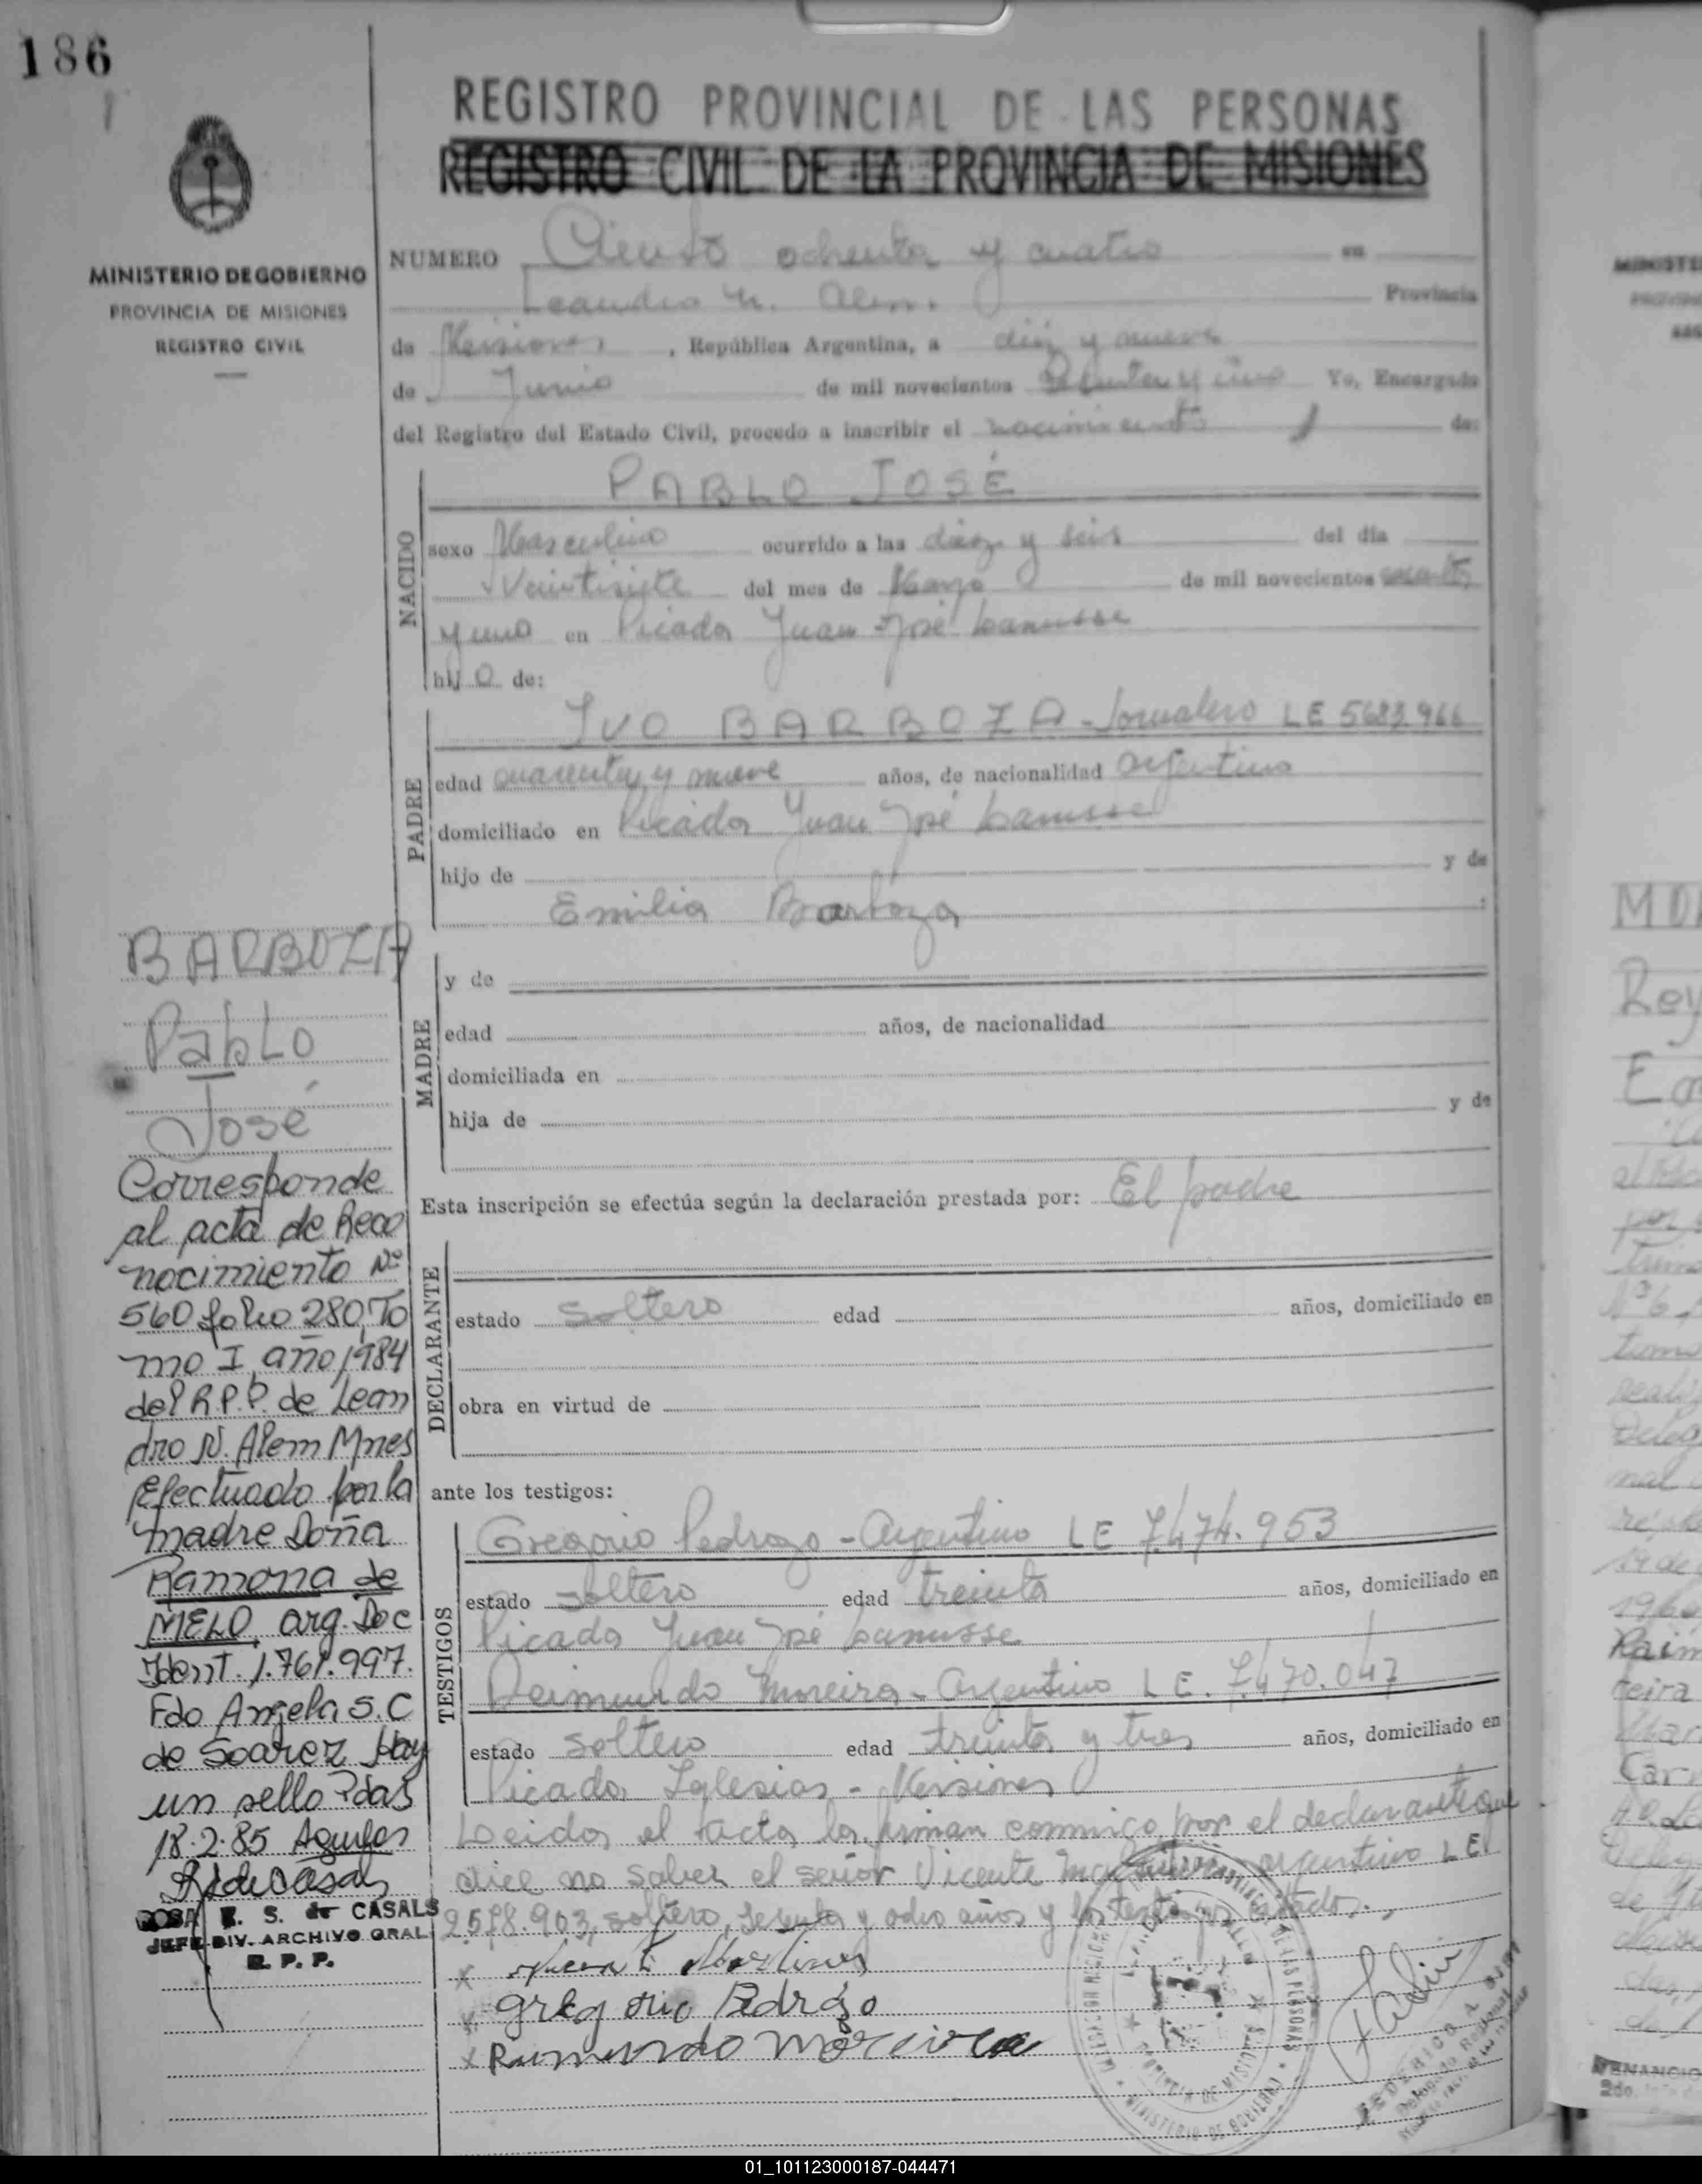 186
REGISTRO PROVINCIAL DE LAS PERSONAS
REGISTRO CIVIL DE LA PROVINCIA DE MISIONES
MINISTERIO DE GOBIERNO
PROVINCIA DE MISIONES
REGISTRO CIVIL
NUMERO Ciento ochenta y cuatro en
Leandro N. Alem. Provincia
de Misiones, República Argentina, a diez y nueve
de Junio de mil novecientos y uno Yo, Encargado
del Registro del Estado Civil, procedo a inscribir el nacimiento de:
NACIDO
PABLO JOSÉ
sexo Masculino ocurrido a las diez y seis del día
Veintisiete del mes de Marzo de mil novecientos
y uno en Picada Juan José Lanusse
hijo de:
PADRE
IVO BARBOZA - Jornalero LE 5683.966
edad cuarenta y nueve años, de nacionalidad argentino
domiciliado en Picada Juan José Lanusse
hijo de y de
Emilia Barboza :
MADRE
y de
edad años, de nacionalidad
domiciliada en
hija de y de
Esta inscripción se efectúa según la declaración prestada por: El padre
DECLARANTE
estado soltero edad años, domiciliado en
obra en virtud de
ante los testigos:
TESTIGOS
Gregorio Pedrozo - Argentino LE 7.474.953
estado soltero edad treinta años, domiciliado en
Picada Juan José Lanusse
Reimundo Moreira - Argentino LE. 7.470.047
estado soltero edad treinta y tres años, domiciliado en
Picada Iglesias - Misiones
Leida el acta la firman conmigo por el declarante que
dice no saber el señor Vicente argentino LE
2578.903, soltero, sesenta y ocho años y los testigos citados.
x Martines
x gregorio Pedrozo
x Raimundo Moreira
BARBOZA
Pablo
José
Corresponde
al acta de Reco
nocimiento Nº
560 folio 280, To
mo I año 1984
del R.P.P. de Lean
dro N. Alem Mnes
Efectuado por la
madre Doña
Ramona de
MELO, arg. Doc
Ident. 1.761.997.
Fdo Angela S. C
de Soarez Hay
un sello Pdas
18.2.85
ROSA E. S. de CASALS
JEFE DIV. ARCHIVO GRAL.
R. P. P.
MINISTERIO DE GOBIERNO
FEDERICO
01_101123000187-044471